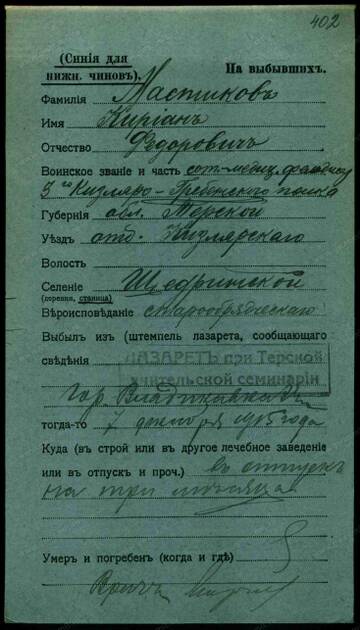 402
(Синія для
нижн. чиновъ).
На выбывшихъ.
Фамилія Мастиковъ
Имя Киріанъ
Отчество Ѳедоровичъ
Воинское званіе и часть
3го Кизляро-Гребенского полка
Губернія обл. Терской
Уѣздъ отд. Кизлярскаго
Волость
Селеніе Щедринской
(деревня, станица)
Вѣроисповѣданіе старообрядческаго
Выбылъ изъ (штемпель лазарета, сообщающаго
свѣдѣнія
ЛАЗАРЕТЪ при Терской
учительской семинаріи
гор. Владикавказ
тогда-то 7 декабря 1915 года
Куда (въ строй или въ другое лечебное заведеніе
или въ отпускъ и проч.) въ отпускъ
на три мѣсяца
Умеръ и погребенъ (когда и гдѣ)
Врачъ